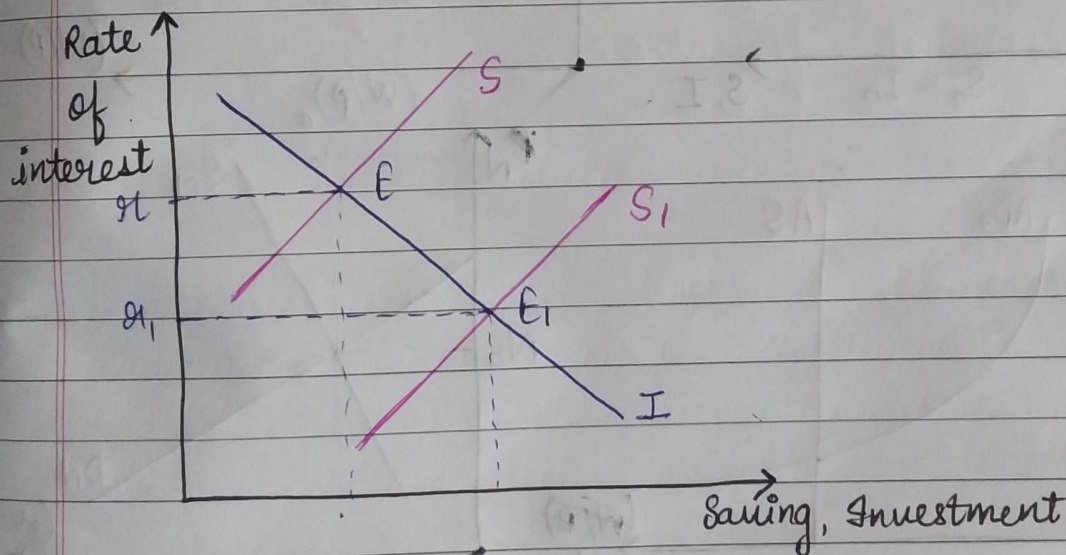 Rate
of
interest
S
E
r
S₁
r₁
E₁
I
Saving, Investment